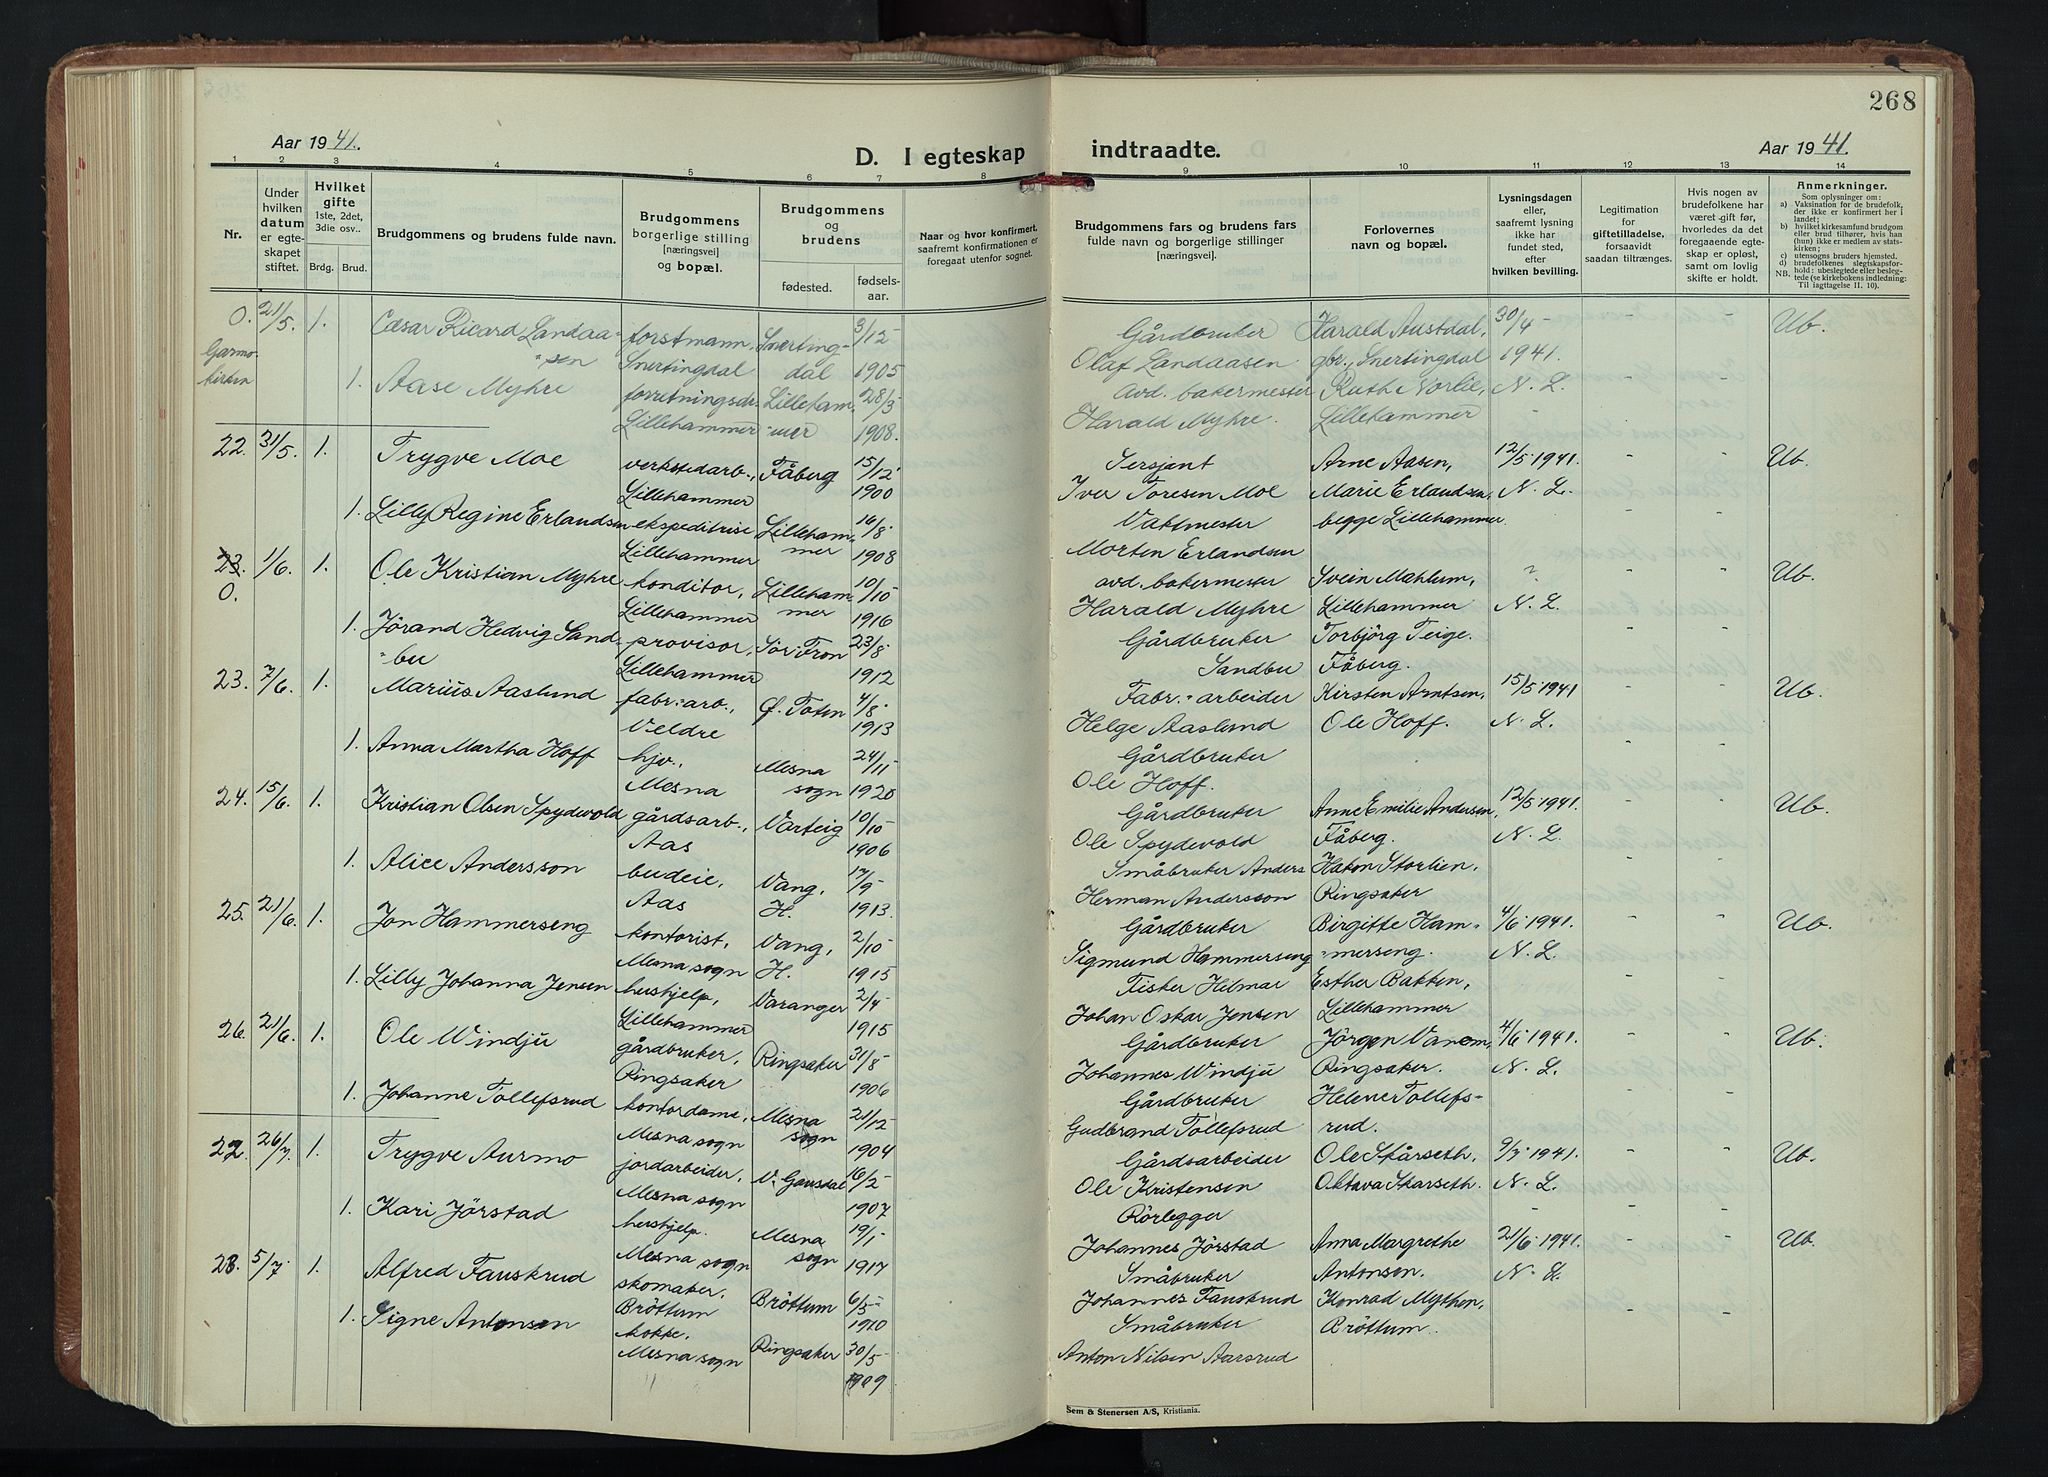 268
Aar 1941.
D. I egteskap indtraadte.
Aar 1941.
1 2 3 4 5 6 7 8 9 10 11 12 13 14
Nr.
Under hvilken datum er egteskapet stiftet.
Hvilket gifte 1ste, 2det, 3die osv..
Brdg. Brud.
Brudgommens og brudens fulde navn.
Brudgommens borgerlige stilling [næringsvei] og bopæl.
Brudgommens og brudens
fødested.
fødsels-aar.
Naar og hvor konfirmert, saafremt konfirmationen er foregaat utenfor sognet.
Brudgommens fars og brudens fars fulde navn og borgerlige stillinger [næringsvei].
Forlovernes navn og bopæl.
Lysningsdagen eller, saafremt lysning ikke har fundet sted, efter hvilken bevilling.
Legitimation for giftetilladelse, forsaavidt saadan tiltrænges.
Hvis nogen av brudefolkene har været gift før, hvorledes da det foregaaende egteskap er opløst, samt om lovlig skifte er holdt.
Anmerkninger.
Som oplysninger om:
a) Vaksination for de brudefolk, der ikke er konfirmert her i landet;
b) hvilket kirkesamfund brudgom eller brud tilhører, hvis han (hun) ikke er medlem av statskirken;
c) utensogns bruders hjemsted.
d) brudefolkenes slegtskapsforhold: ubeslegtede eller beslegtede (se kirkebokens indledning:
NB. Til iagttagelse II. 10).
0. 21/5. 1. Cæsar Ricard Landaa- forstmann, Snerting- 3/12 Gårdbruker Harald Austdal, 30/4 - - - Ub.
Garmo- -sen Snertingdal dal 1905 Olaf Landaasen gbr., Snertingdal 1941.
kirken 1. Aase Myhre forretningsdr. Lilleham- 28/3 avd. bakermester Ruth Norlie, N. L.
Lillehammer -mer 1908. Harald Myhre. Lillehammer
22. 31/5. 1. Trygve Moe verkstedarb., Fåberg 15/12 Sersjant Arne Aasen, 12/5 1941. - - Ub.
Lillehammer 1900 Iver Toresen Moe Marie Erlandsen, N. L.
1. Lilly Regine Erlandsen ekspeditrise Lilleham- 16/8 Vaktmester begge Lillehammer
Lillehammer mer 1908 Morten Erlandsen
23. 1/6. 1. Ole Kristian Myhre konditor, Lilleham- 10/10 avd. bakermester Svein Mæhlum, ? - - Ub.
0. Lillehammer mer 1916 Harald Myhre Lillehammer N. L.
1. Jörand Hedvig Sand- provisor, Sör-Fron 23/8 Gårdbruker Torbjörg Teige.
-bu Lillehammer 1912 Sandbu Fåberg.
23. 7/6. 1. Marius Aaslund fabr.-arb., Ø. Toten 4/8 Fabr.-arbeider Kirsten Arntsen, 15/5 1941 - - Ub.
Veldre 1913 Helge Aaslund Ole Hoff. N. L.
1. Anna Martha Hoff hjv., Mesna 24/11 Gårdbruker
Mesna sogn 1920 Ole Hoff.
24. 15/6. 1. Kristian Olsen Spydevold gårdsarb., Varteig 10/10 Gårdbruker Anne Emilie Andersen, 12/5 1941. - - Ub.
Aas 1906 Ole Spydevold Fåberg. N. L.
1. Alice Andersson budeie, Vang, 17/9 Småbruker Anders Håkon Storlien,
Aas H. 1913. Herman Andersson Ringsaker
25. 21/6. 1. Jon Hammerseng kontorist, Vang, 2/10 Gårdbruker Birgitte Ham- 4/6 1941. - - Ub.
Mesna sogn H. 1915 Sigmund Hammerseng -merseng. N. L.
1. Lilly Johanna Jensen hushjelp, Varanger 2/4 Fisker Hilmar Esther Bakken,
Lillehammer 1915 Johan Oskar Jensen Lillehammer
26. 21/6. 1. Ole Windju gårdbruker, Ringsaker 31/8 Gårdbruker Jörgen Vanem, 4/6 1941. - - Ub.
Ringsaker 1906 Johannes Windju Ringsaker. N. L.
1. Johanne Tollefsrud kontordame, Mesna 21/12 Gårdbruker Helene Tollefs-
Mesna sogn sogn 1904 Gudbrand Tollefsrud rud.
22. 26/7. 1. Trygve Aurmo jordarbeider, V. Gausdal 16/2 Gårdsarbeider Ole Skårseth, 9/7 1941. - - Ub.
Mesna sogn 1907 Ole Kristensen Oktava Skarseth. N. L.
1. Kari Jörstad hushjelp. Mesna 19/1 Rörlegger
Mesna sogn sogn 1917 Johannes Jörstad
28. 5/7. 1. Alfred Fauskrud skomaker. Bröttum 6/5 Småbruker Anna Margrethe 21/6 1941. - - Ub.
Bröttum 1910 Johannes Fauskrud Antonsen. N. L.
1. Signe Antonsen kokke. Ringsaker 30/5 Småbruker Konrad Mythen,
Mesna sogn 1909 Anton Nilsen Aarsrud Bröttum.
Sem & Stenersen A/S, Kristiania.